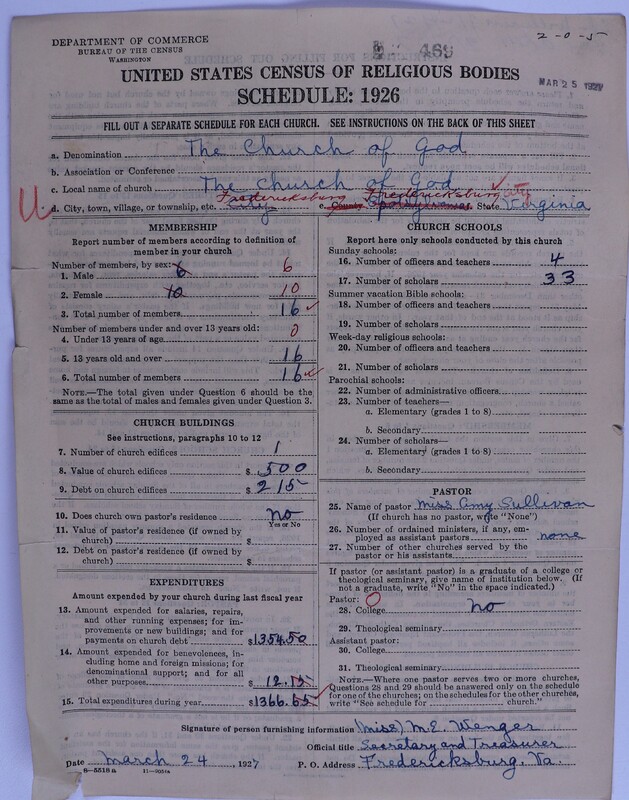 DEPARTMENT OF COMMERCE
BUREAU OF THE CENSUS
WASHINGTON
469
2-0-5
MAR 25 1927
UNITED STATES CENSUS OF RELIGIOUS BODIES
SCHEDULE: 1926
FILL OUT A SEPARATE SCHEDULE FOR EACH CHURCH. SEE INSTRUCTIONS ON THE BACK OF THIS SHEET
a. Denomination The Church of God
b. Association or Conference
c. Local name of church The Church of God
Fredericksburg Fredericksburg City
U d. City, town, village, or township, etc. City e. County Spottsylvania State Virginia
MEMBERSHIP
Report number of members according to definition of
member in your church
Number of members, by sex:
1. Male 6 6
2. Female 10 10
3. Total number of members 16
Number of members under and over 13 years old: 0
4. Under 13 years of age
5. 13 years old and over 16
6. Total number of members 16
NOTE.—The total given under Question 6 should be
the same as the total of males and females given under Question 3.
CHURCH BUILDINGS
See instructions, paragraphs 10 to 12
7. Number of church edifices 1
8. Value of church edifices $ 500
9. Debt on church edifices $ 215
10. Does church own pastor's residence no
Yes or No
11. Value of pastor's residence (if owned by
church) $
12. Debt on pastor's residence (if owned by
church) $
EXPENDITURES
Amount expended by your church during last fiscal year
13. Amount expended for salaries, repairs,
and other running expenses; for im-
provements or new buildings; and for
payments on church debt $1354.50
14. Amount expended for benevolences, in-
cluding home and foreign missions; for
denominational support; and for all
other purposes $ 12.15
15. Total expenditures during year $1366.65
CHURCH SCHOOLS
Report here only schools conducted by this church
Sunday schools:
16. Number of officers and teachers 4
17. Number of scholars 33
Summer vacation Bible schools:
18. Number of officers and teachers
19. Number of scholars
Week-day religious schools:
20. Number of officers and teachers
21. Number of scholars
Parochial schools:
22. Number of administrative officers
23. Number of teachers—
a. Elementary (grades 1 to 8)
b. Secondary
24. Number of scholars—
a. Elementary (grades 1 to 8)
b. Secondary
PASTOR
25. Name of pastor Miss Amy Sullivan
(If church has no pastor, write "None")
26. Number of ordained ministers, if any, em-
ployed as assistant pastors none
27. Number of other churches served by the
pastor or his assistants
If pastor (or assistant pastor) is a graduate of a college or
theological seminary, give name of institution below. (If
not a graduate, write "No" in the space indicated.)
Pastor: 0
28. College no
29. Theological seminary
Assistant pastor:
30. College
31. Theological seminary
NOTE.—Where one pastor serves two or more churches,
Questions 28 and 29 should be answered only on the schedule
for one of the churches; on the schedules for the other churches,
write "See schedule for church."
Signature of person furnishing information (Miss) M.E. Wenger
Official title Secretary and Treasurer
Date March 24, 1927 P. O. Address Fredericksburg, Va.
8—5518a 11—7051a